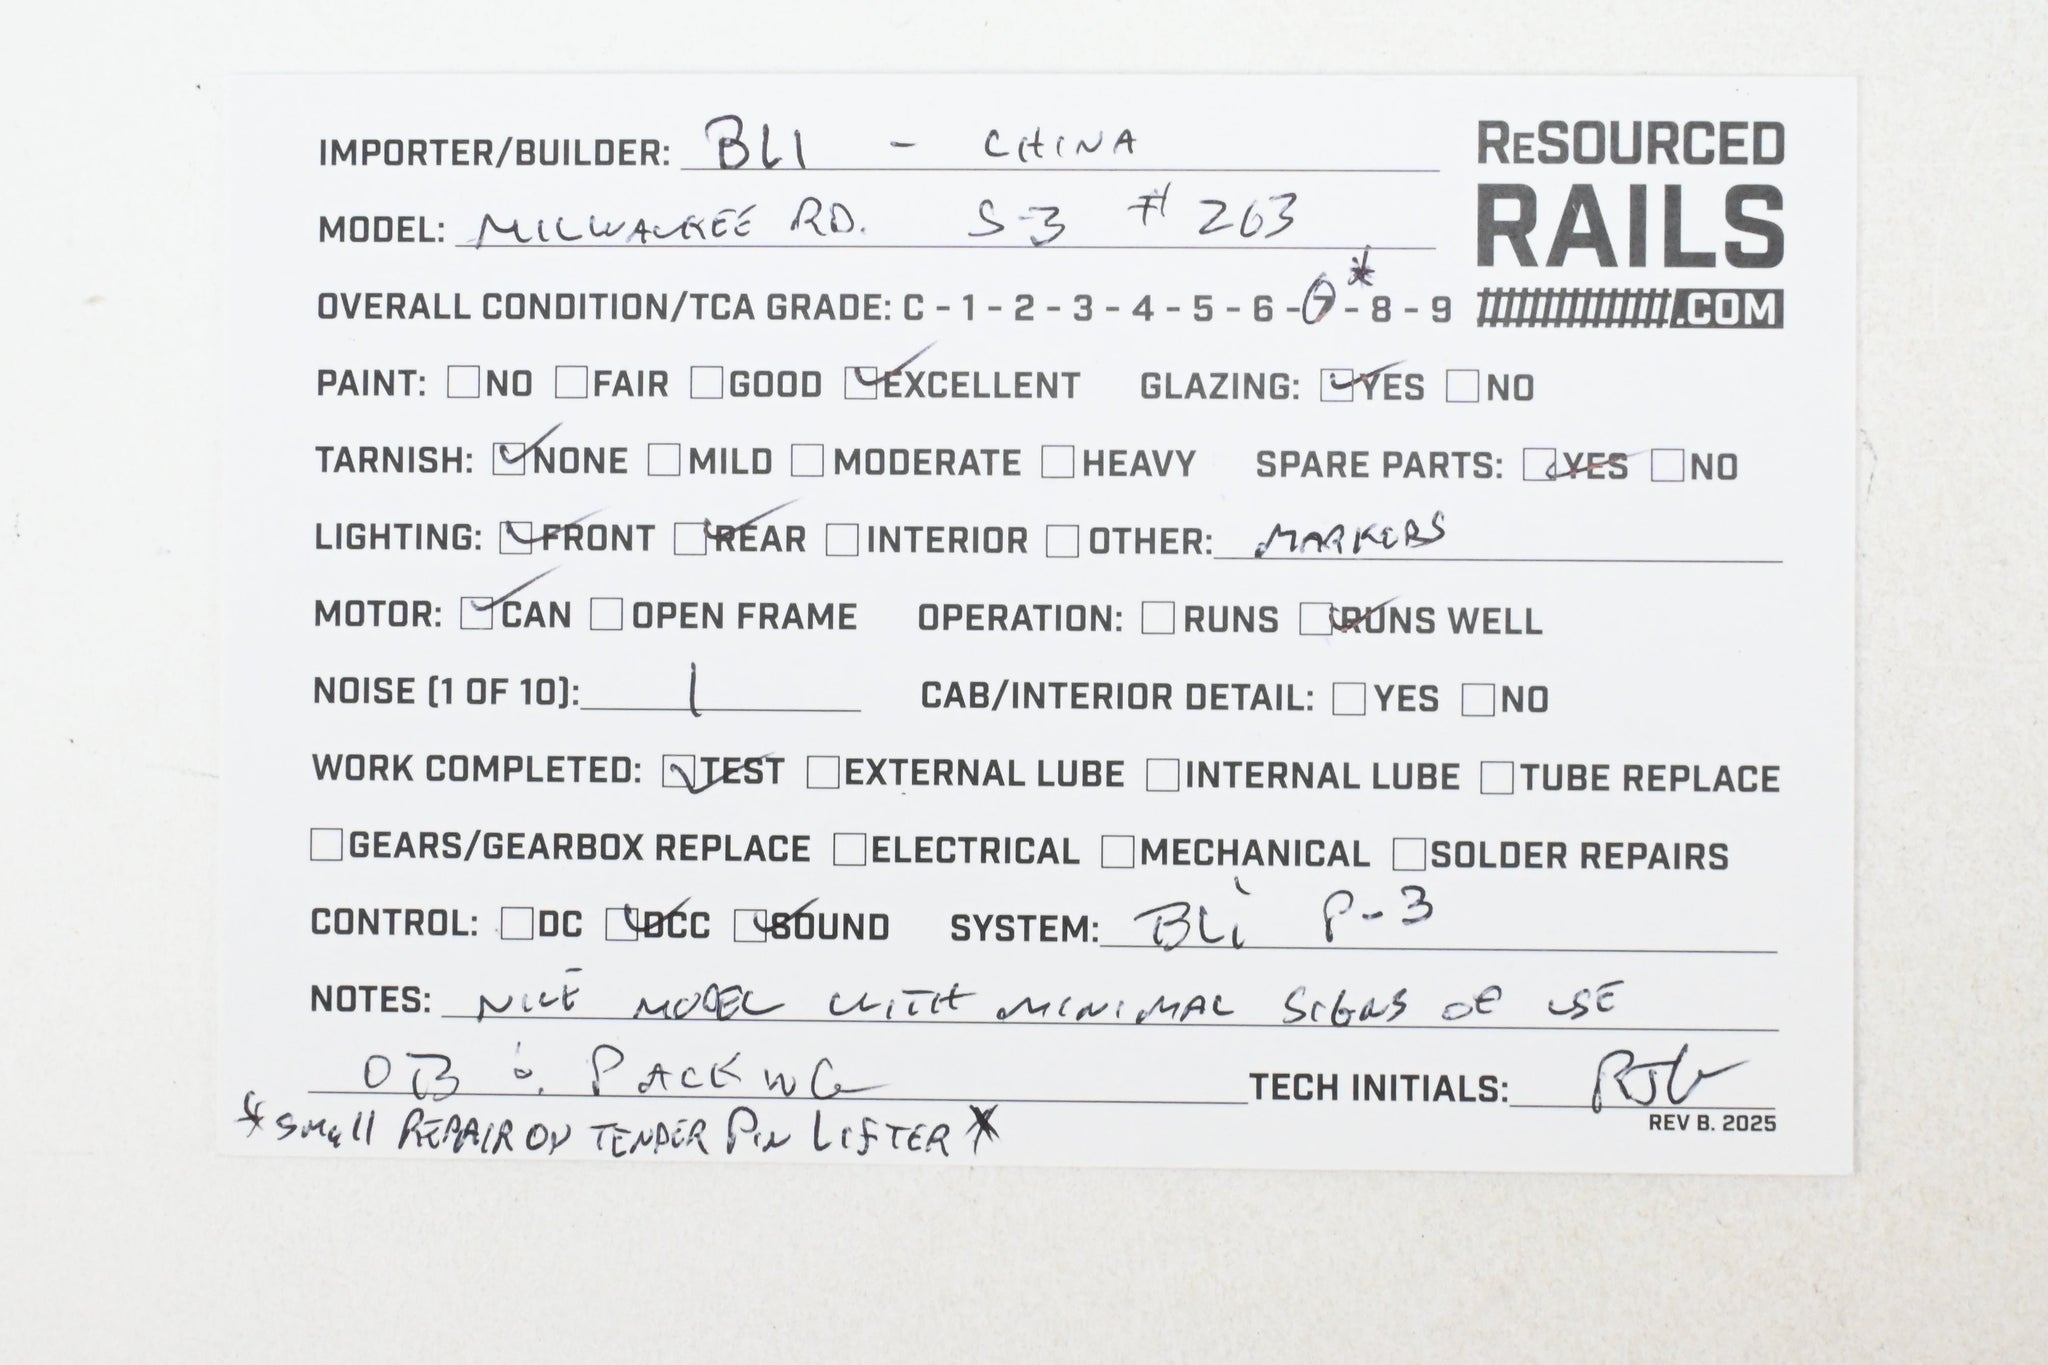 IMPORTER/BUILDER: BLI - CHINA
ReSOURCED
RAILS
.COM
MODEL: MILWAUKEE RD. S-3 # 263
OVERALL CONDITION/TCA GRADE: C - 1 - 2 - 3 - 4 - 5 - 6 - 7 * - 8 - 9
PAINT: NO FAIR GOOD EXCELLENT GLAZING: YES NO
TARNISH: NONE MILD MODERATE HEAVY SPARE PARTS: YES NO
LIGHTING: FRONT REAR INTERIOR OTHER: MARKERS
MOTOR: CAN OPEN FRAME OPERATION: RUNS RUNS WELL
NOISE (1 OF 10): 1 CAB/INTERIOR DETAIL: YES NO
WORK COMPLETED: TEST EXTERNAL LUBE INTERNAL LUBE TUBE REPLACE
GEARS/GEARBOX REPLACE ELECTRICAL MECHANICAL SOLDER REPAIRS
CONTROL: DC DCC SOUND SYSTEM: BLi P-3
NOTES: NICE MODEL WITH MINIMAL SIGNS OF USE
OB & PACKING TECH INITIALS:
REV B. 2025
* Small REPAIR ON TENDER PIN LIFTER *